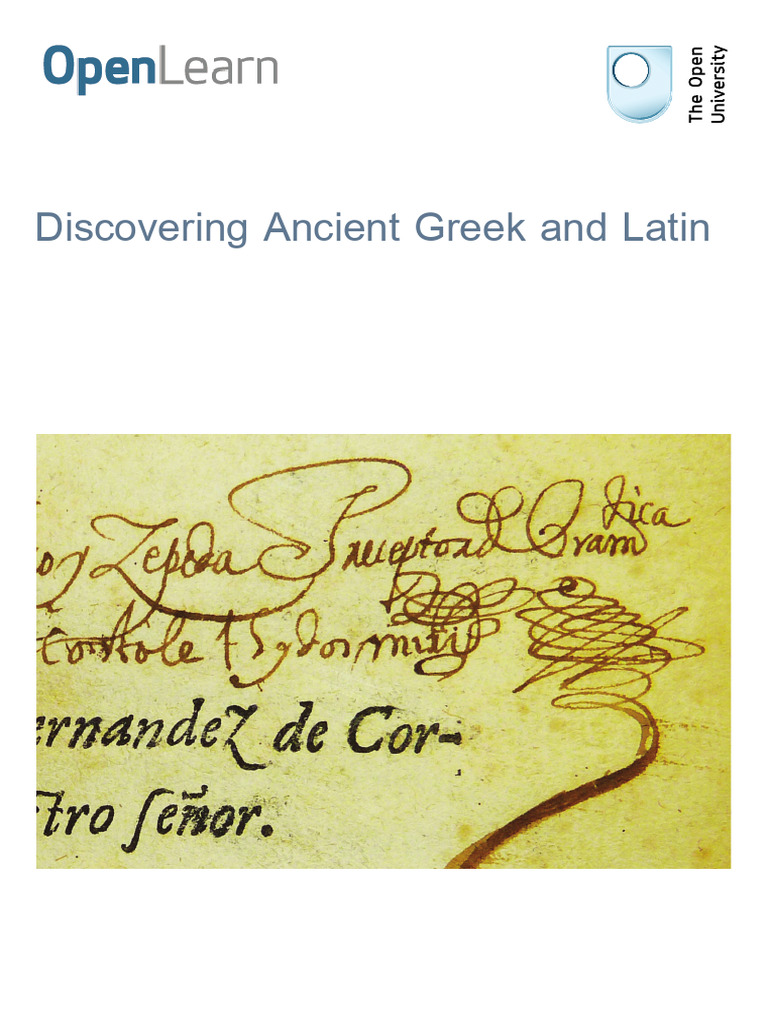 OpenLearn
The Open
University
Discovering Ancient Greek and Latin
Zepeda
Gram
tica
ernandeZ de Cor-
ſtro ſeñor.